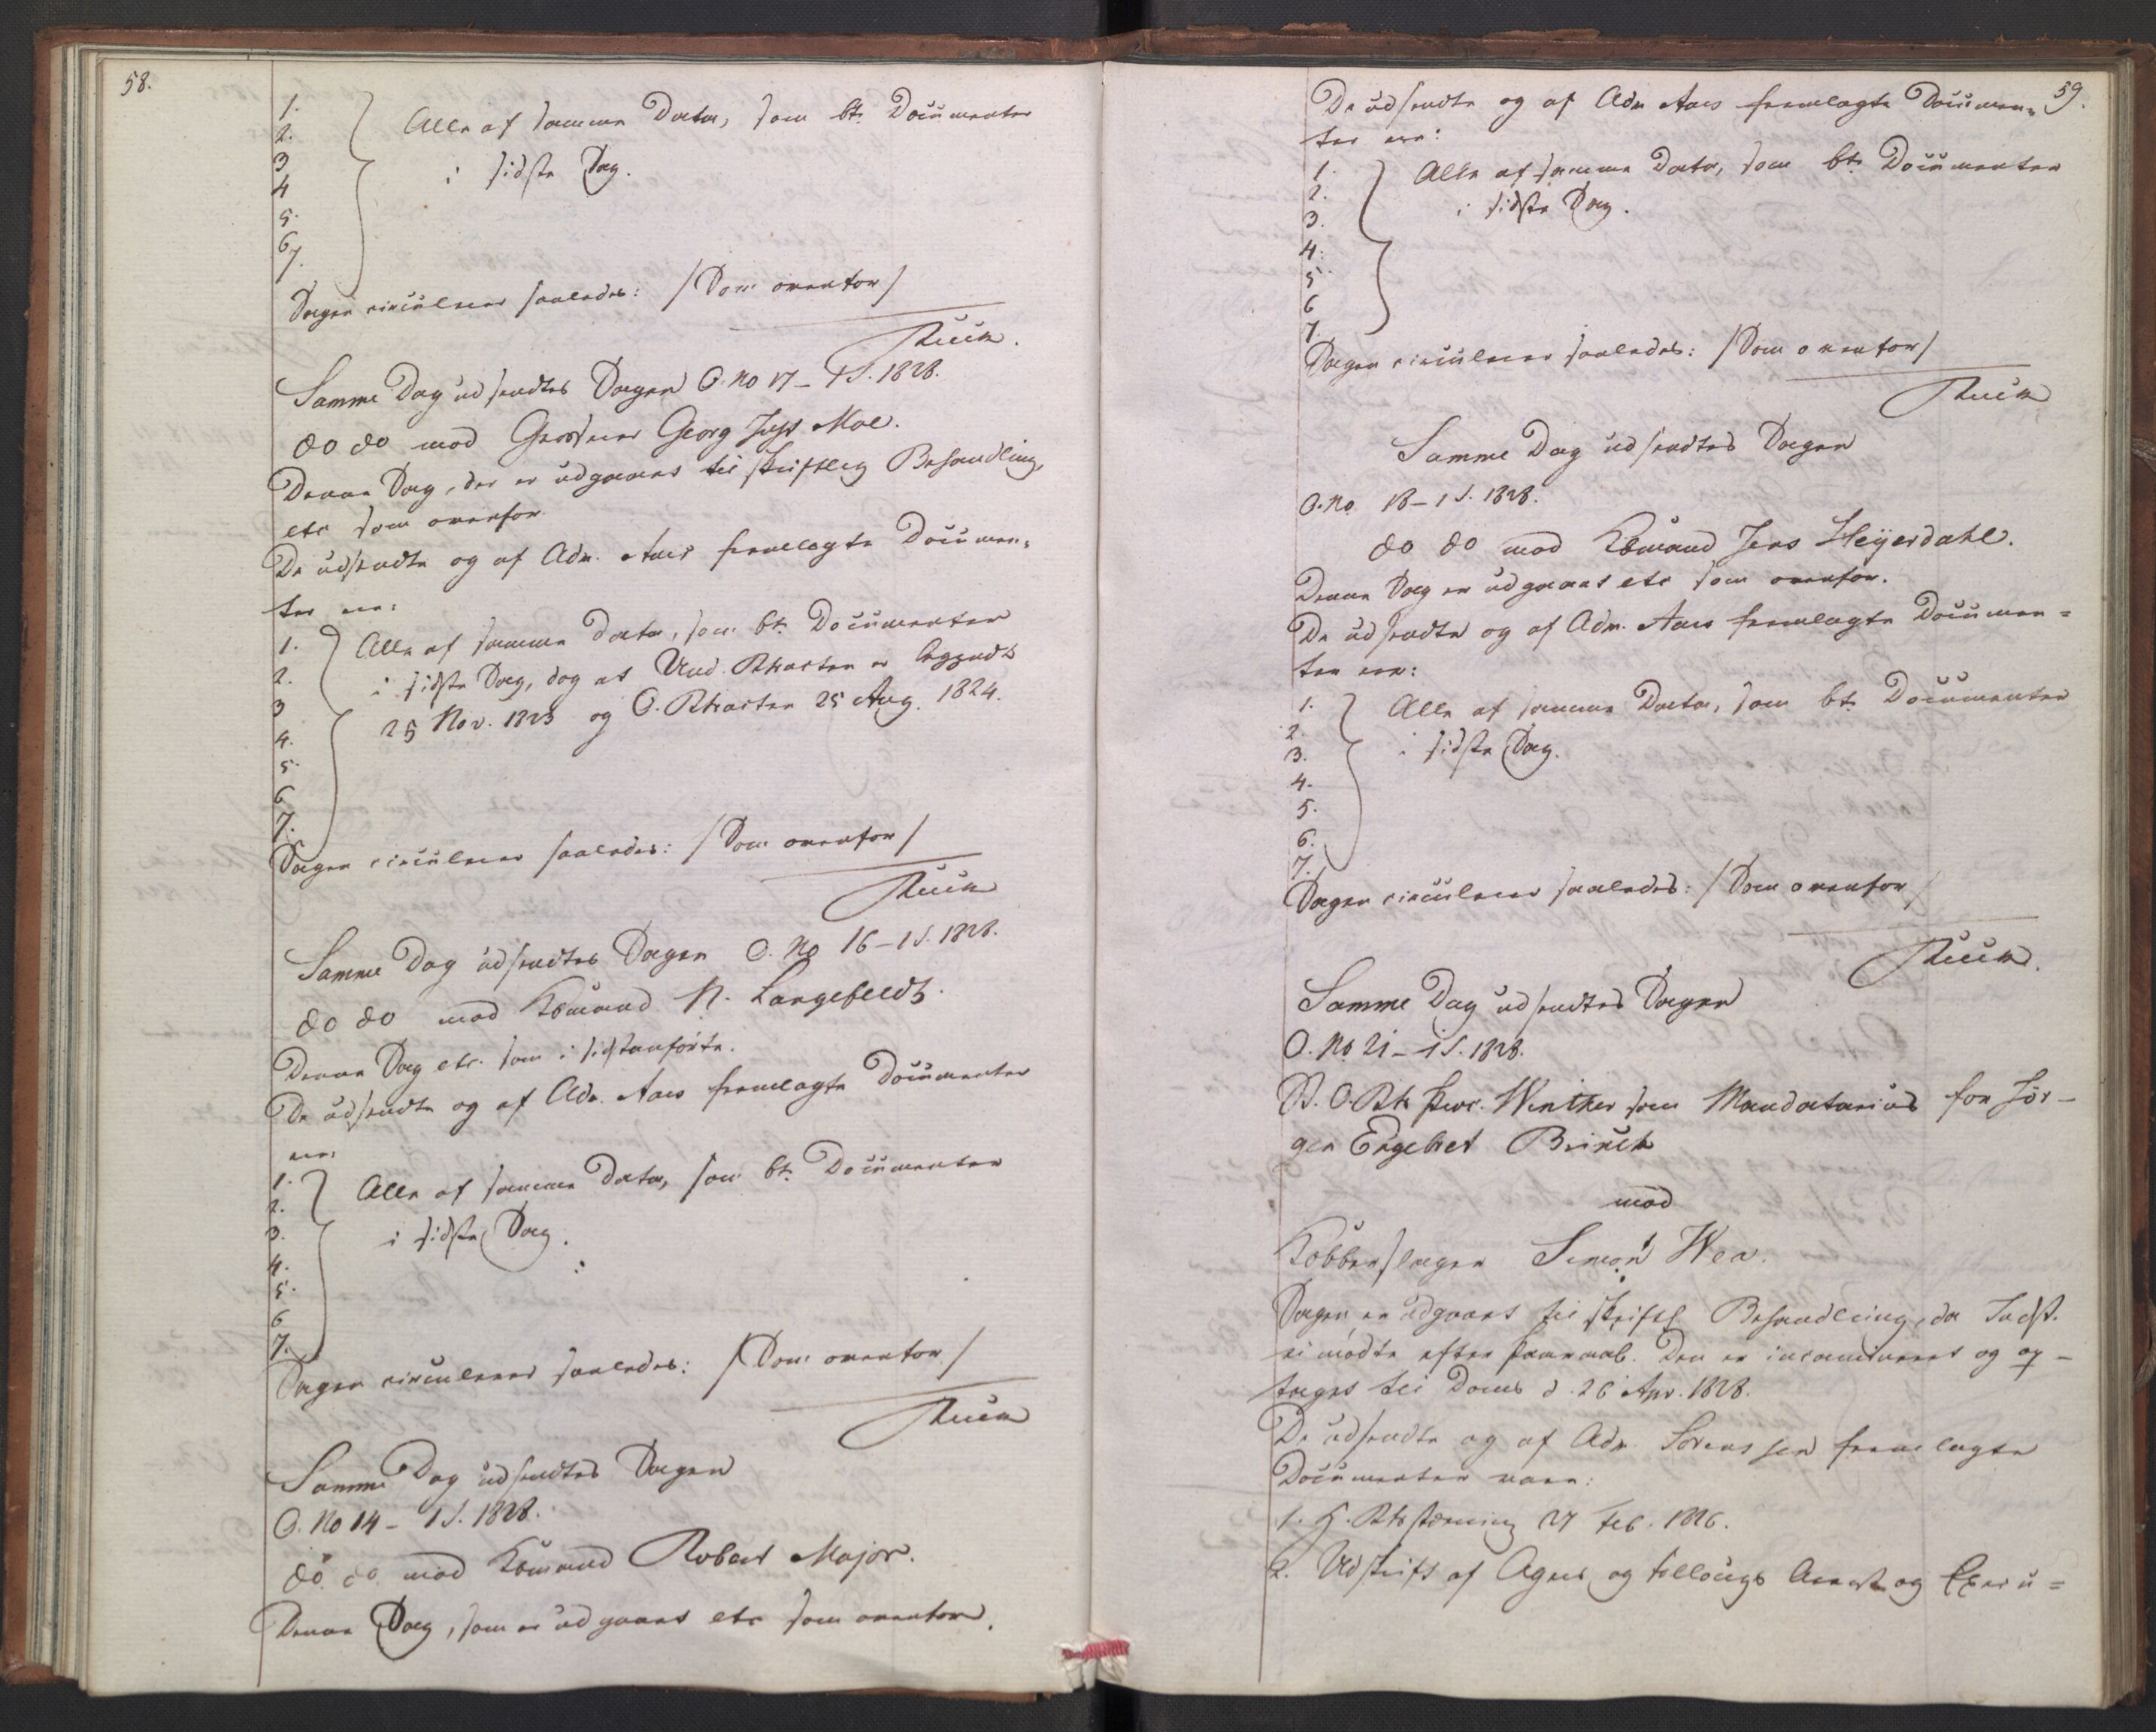 58.
1.
2.
3
4
5.
6
7.
Alle af samme Data, som bte Documenter
i sidste Sag.
Sagen circulerer saaledes: /Som ovenfor/
Samme Dag udsendtes Sagen O. No 17 - 1 S. 1828.
do do mod Grosserer Georg Mae.
Denne Sag, der er udgaaet til skriftlig Behandling,
etc som ovenfor
De udsendte og af Adv. Aars fremlagte Documen-
ter ere:
1.
2.
3
4.
5.
6
7.
Alle af samme Data, som bte Documenter
i sidste Sag, dog at Und. Rtsacten er begjendt
25 Nov. 1823 og O. Rtsacten 25 Aug. 1824.
Sagen circulerer saaledes: /Som ovenfor/
Samme Dag udsendtes Sagen O. No 16 - 1 S. 1828.
do do mod Kbmand N. Langefeldt.
Denne Sag etc. som i sidstanførte.
De udsendte og af Adv. Aars fremlagte Documenter
ere:
1.
2.
3.
4.
5.
6
7.
Alle af samme Data, som bte Documenter
i sidste Sag.
Sagen circulerer saaledes: /Som ovenfor/
Samme Dag udsendtes Sagen
O. No 14 - 1 S. 1828.
do. do. mod Kbmand Robert Major.
Denne Sag, som er udgaaet etc som ovenfor.
59.
De udsendte og af Adv Aars fremlagte Documen-
ter ere:
1.
2.
3.
4.
5
6
7.
Alle af samme Data, som bte Documenter
i sidste Sag.
Sagen circulerer saaledes: /Som ovenfor/
Samme Dag udsendtes Sagen
O. No 18 - 1 S. 1828.
do do mod Kbmand Jens Heyerdahl.
Denne Sag er udgaaet etc som ovenfor.
De udsendte og af Adv. Aars fremlagte Documen-
ter ere:
1.
2.
3.
4.
5.
6.
7.
Alle af samme Data, som bte Documenter
i sidste Sag.
Sagen circulerer saaledes: /Som ovenfor/
Samme Dag udsendtes Sagen
O. No 21 - 1 S. 1828.
O. Rts Proc. Winther som Mandatarius for Jør-
gen Engebret Brinch
mod
Kobberslager Simon Wea.
Sagen er udgaaet til skriftl. Behandling, da Indst.
ei mødte efter Paaraab. Den er incamineret og op-
tages til Doms d. 26 Apr. 1828.
De udsendte og af Adv. Sørenssen fremlagte
Documenter vare:
1. H. Rtsstævning 27 Feb. 1826.
2. Udskrift af Agers og Follougs Arrest og Execu=